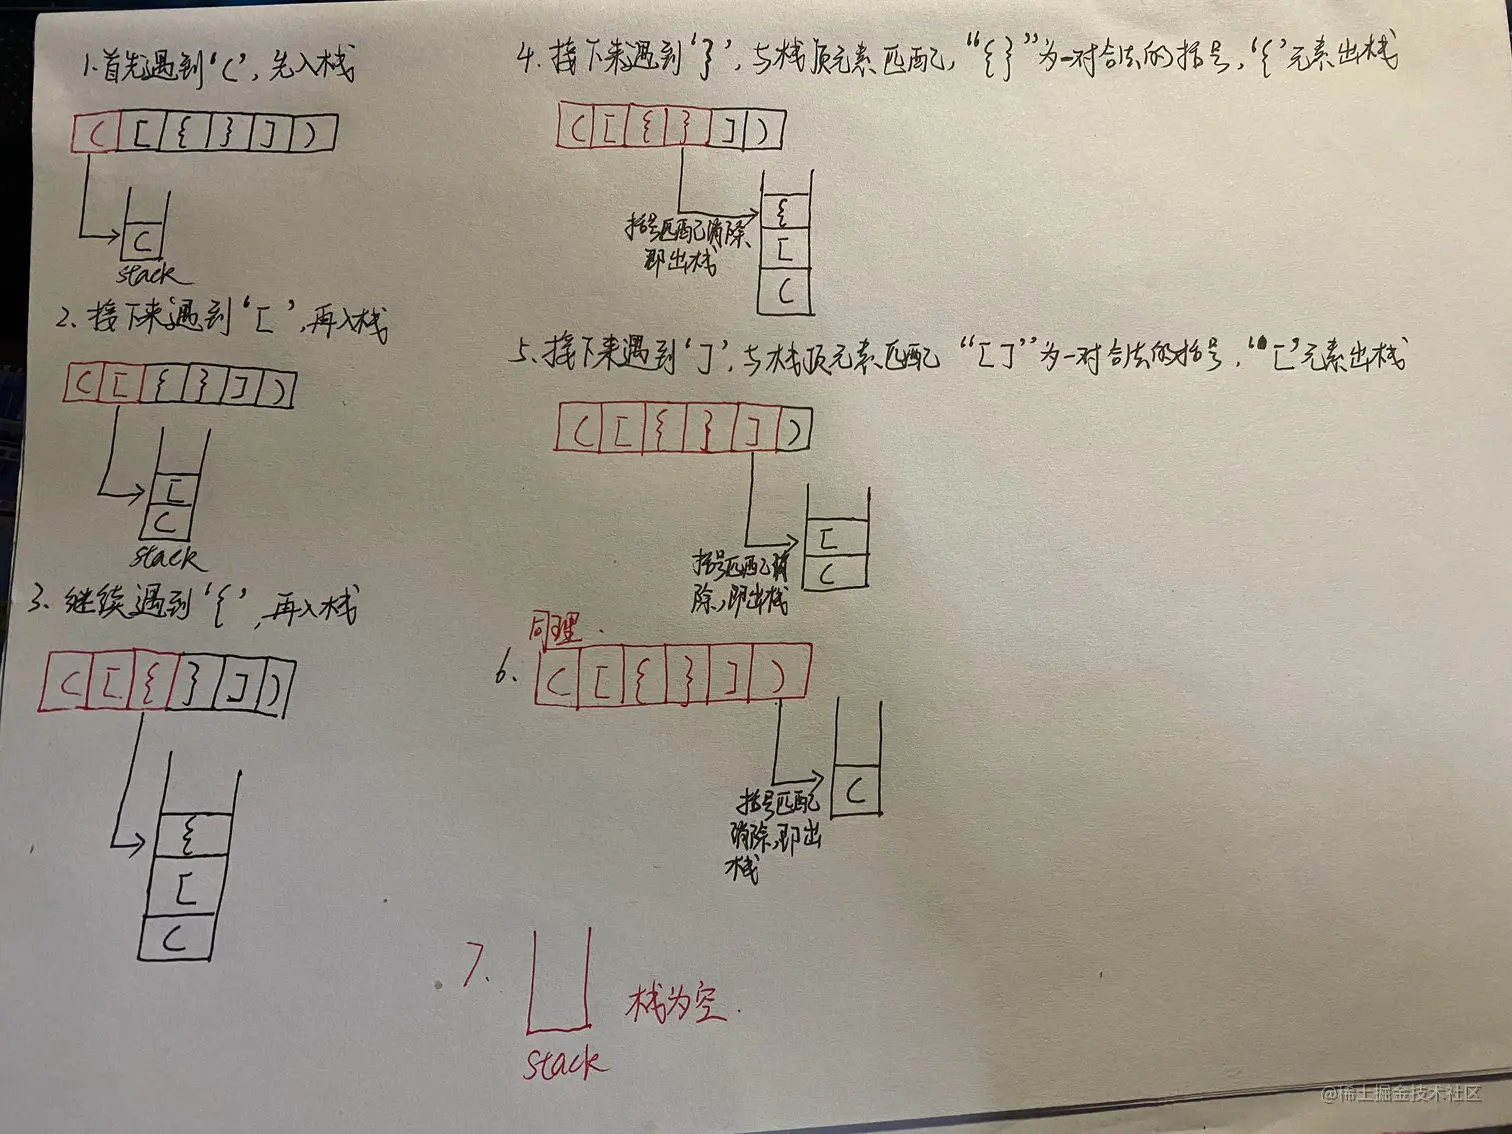 1.首先遇到‘(’,先入栈
( [ { } ] )
(
stack
2、接下来遇到‘[’,再入栈
( [ { } ] )
[
(
stack
3、继续遇到‘{’,再入栈
( [ { } ] )
{
[
(
4.接下来遇到‘}’,与栈顶元素匹配,“{}”为一对合法的括号,‘{’元素出栈
( [ { } ] )
括号匹配消除、
即出栈
{
[
(
5、接下来遇到‘]’,与栈顶元素匹配 “[]”为一对合法的括号,‘[’元素出栈
( [ { } ] )
括号匹配消
除,即出栈
[
(
同理.
6、
( [ { } ] )
括号匹配
消除,即出
栈
(
7、
栈为空.
stack
@稀土掘金技术社区